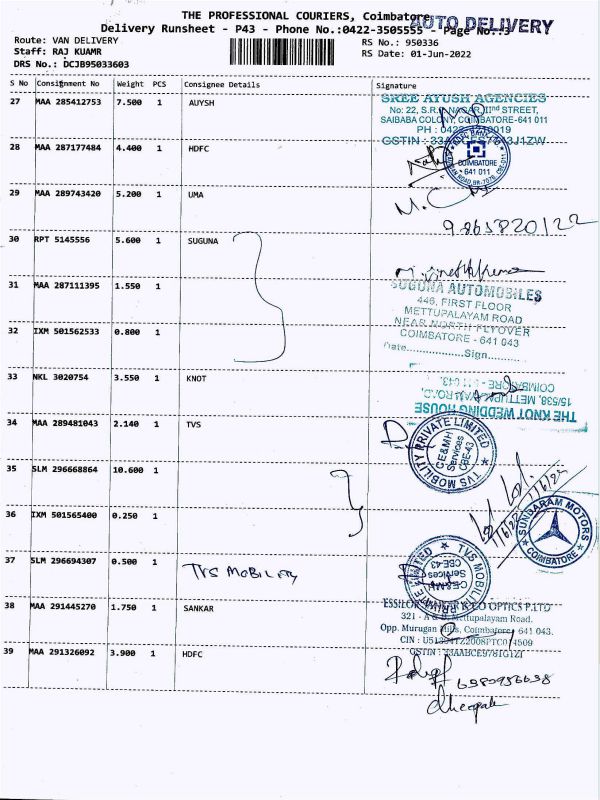 THE PROFESSIONAL COURIERS, Coimbatore
AUTO DELIVERY
Delivery Runsheet - P43 - Phone No.:0422-3505555 - Page No.:3
Route: VAN DELIVERY
Staff: RAJ KUAMR
DRS No.: DCJB95033603
RS No.: 950336
RS Date: 01-Jun-2022
S No Consignment No Weight PCS Consignee Details Signature
27 MAA 285412753 7.500 1 AUYSH
SREE AYUSH AGENCIES
No: 22, S.R.P. NAGAR, IInd STREET,
SAIBABA COLONY, COIMBATORE-641 011
28 MAA 287177484 4.400 1 HDFC
COIMBATORE
641 011
29 MAA 289743420 5.200 1 UMA
9865820122
30 RPT 5145556 5.600 1 SUGUNA
31 MAA 287111395 1.550 1
SUGUNA AUTOMOBILES
446, FIRST FLOOR
METTUPALAYAM ROAD
NEAR NORTH FLYOVER
COIMBATORE - 641 043
Date Sign
32 IXM 501562533 0.800 1
33 NKL 3020754 3.550 1 KNOT
THE KNOT WEDDING HOUSE
15/538, METTUPALAYAM ROAD,
COIMBATORE - 641 043.
34 MAA 289481043 2.140 1 TVS
TVS MOBILITY PRIVATE LIMITED
CE&MH
Services
CBE-43
35 SLM 296668864 10.600 1
36 IXM 501565400 0.250 1
SUNDARAM MOTORS
COIMBATORE
37 SLM 296694307 0.500 1 TVS MOBILITY
TVS MOBILITY PRIVATE LIMITED
CE&MH
Services
CBE-43
38 MAA 291445270 1.750 1 SANKAR
OPTICS P.LTD
Mettupalayam Road,
Opp. Murugan Mills, Coimbatore 641 043.
39 MAA 291326092 3.900 1 HDFC